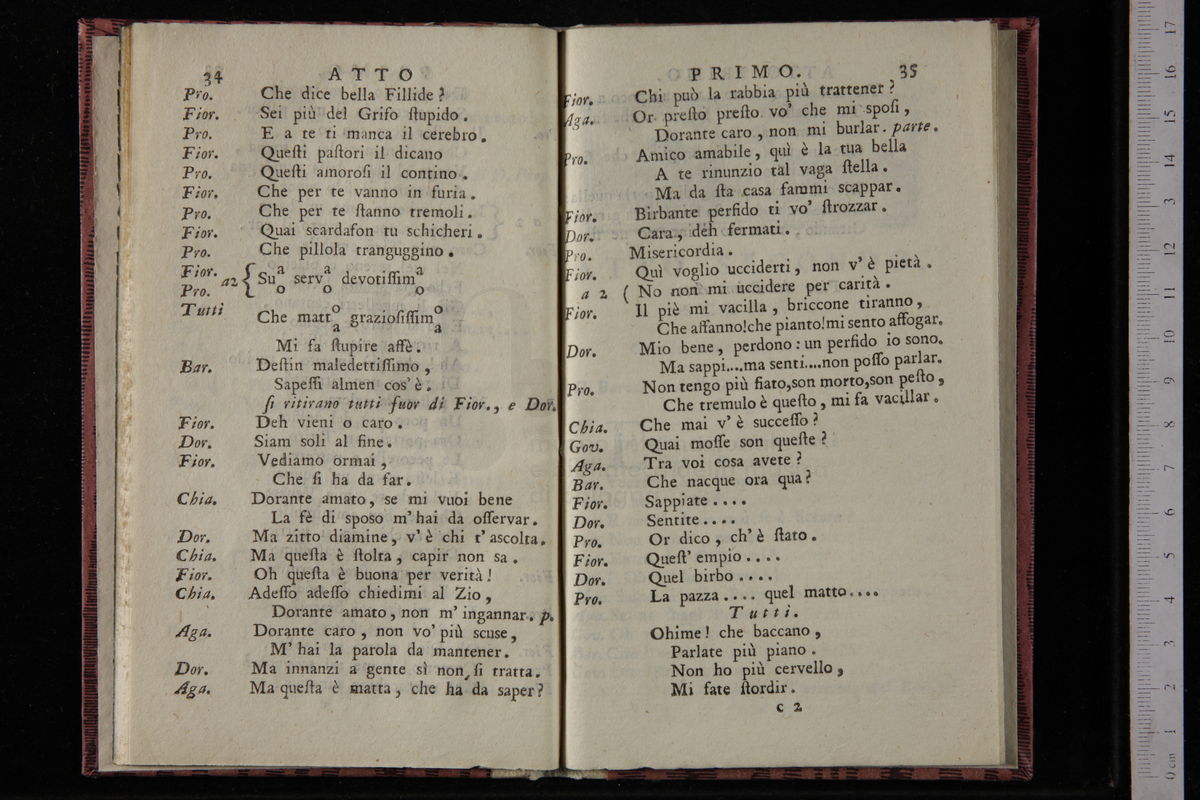 34 ATTO
Pro. Che dice bella Fillide?
Fior. Sei più del Grifo ſtupido.
Pro. E a te ti manca il cerebro.
Fior. Queſti paſtori il dicano
Pro. Queſti amoroſi il contino.
Fior. Che per te vanno in furia.
Pro. Che per te ſtanno tremoli.
Fior. Quai scardafon tu schicheri.
Pro. Che pillola tranguggino.
Fior. a a a
a2 { Su serv devotiſſim
Pro. o o o
Tutti o o
Che matt grazioſiſſim
a a
Mi fa ſtupire affè.
Bar. Deſtin maledettiſſimo,
Sapeſſi almen cos' è.
ſi ritirano tutti fuor di Fior., e Dor.
Fior. Deh vieni o caro.
Dor. Siam soli al fine.
Fior. Vediamo ormai,
Che ſi ha da far.
Chia. Dorante amato, se mi vuoi bene
La fè di sposo m' hai da oſſervar.
Dor. Ma zitto diamine, v' è chi t' ascolta.
Chia. Ma queſta è ſtolta, capir non sa.
Fior. Oh queſta è buona per verità!
Chia. Adeſſo adeſſo chiedimi al Zio,
Dorante amato, non m' ingannar. p.
Aga. Dorante caro, non vo' più scuse,
M' hai la parola da mantener.
Dor. Ma innanzi a gente sì non ſi tratta.
Aga. Ma queſta è matta, che ha da saper?
PRIMO. 35
Fior. Chi può la rabbia più trattener?
Aga. Or preſto preſto vo' che mi spoſi,
Dorante caro, non mi burlar. parte.
Pro. Amico amabile, quì è la tua bella
A te rinunzio tal vaga ſtella.
Ma da ſta casa fammi scappar.
Fior. Birbante perfido ti vo' ſtrozzar.
Dor. Cara, deh fermati.
Pro. Misericordia.
Fior. Quì voglio ucciderti, non v' è pietà.
a 2 ( No non mi uccidere per carità.
Fior. Il piè mi vacilla, briccone tiranno,
Che affanno!che pianto!mi sento affogar.
Dor. Mio bene, perdono: un perfido io sono.
Ma sappi....ma senti....non poſſo parlar.
Pro. Non tengo più fiato,son morto,son peſto,
Che tremulo è queſto, mi fa vacillar.
Chia. Che mai v' è succeſſo?
Gov. Quai moſſe son queſte?
Aga. Tra voi cosa avete?
Bar. Che nacque ora qua?
Fior. Sappiate....
Dor. Sentite....
Pro. Or dico, ch' è ſtato.
Fior. Queſt' empio....
Dor. Quel birbo....
Pro. La pazza.... quel matto....
Tutti.
Ohime! che baccano,
Parlate più piano.
Non ho più cervello,
Mi fate ſtordir.
C 2
0 cm 1 2 3 4 5 6 7 8 9 10 11 12 13 14 15 16 17